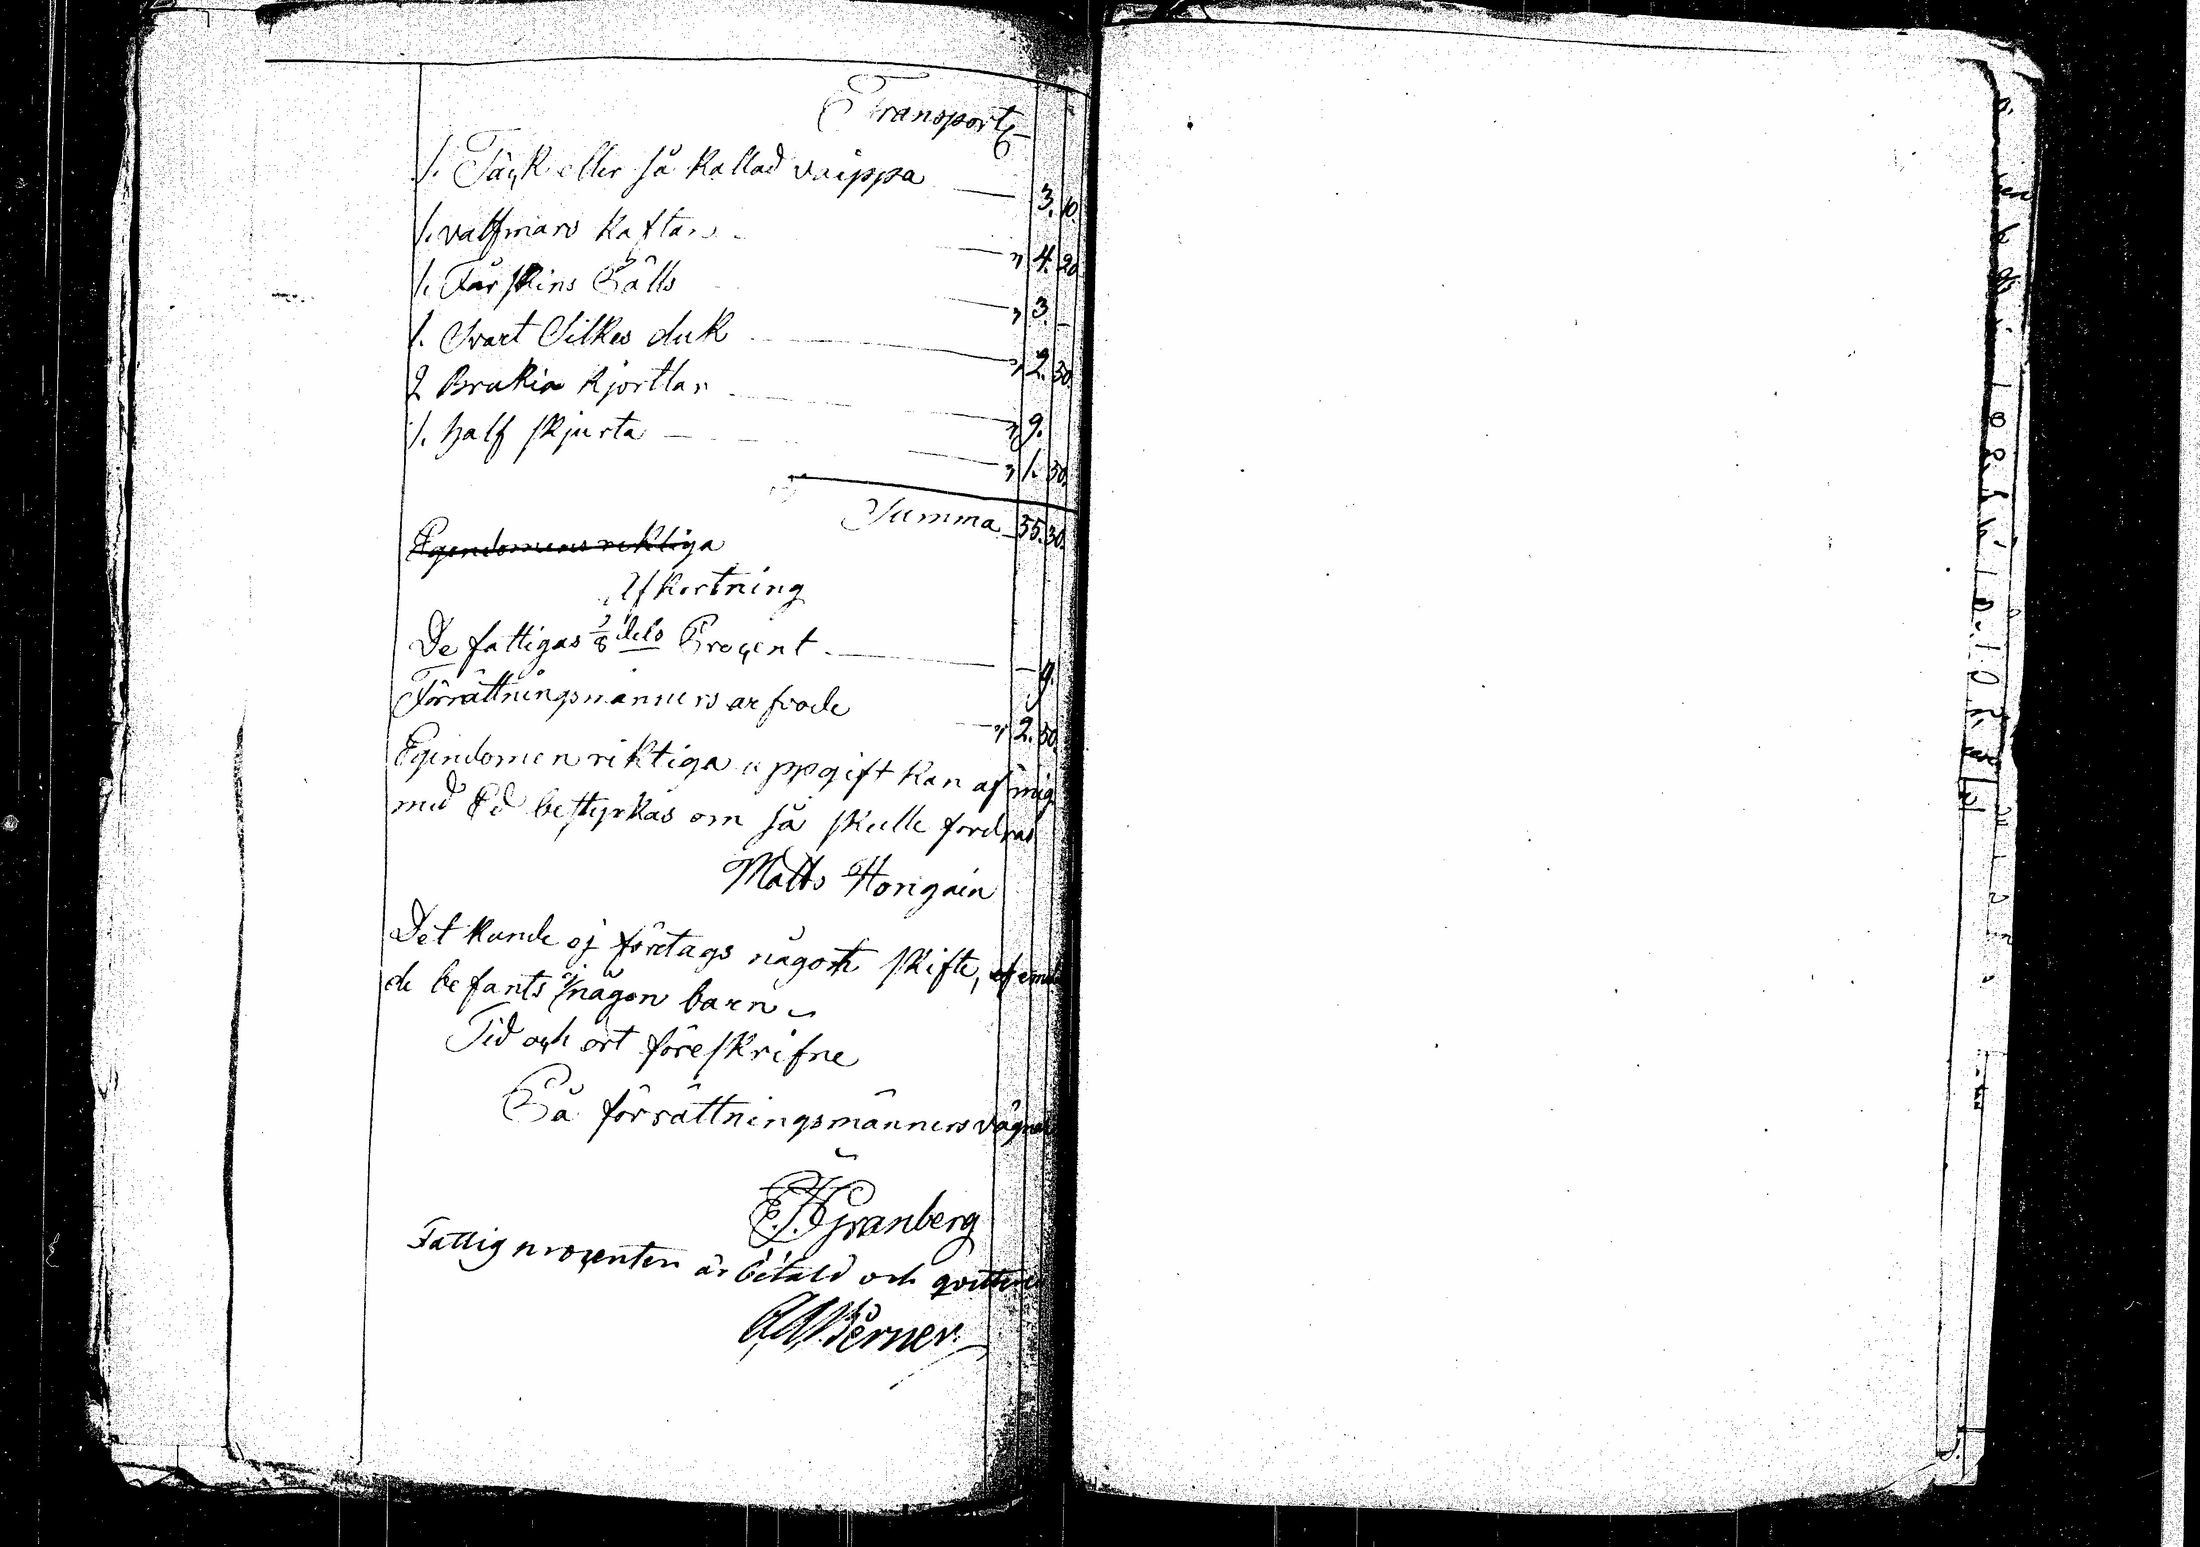 Transport
1. Täck eller så kallad vaippa — 3. 10.
1. valfmars kaftan — " 4. 20
1. Fårskins Pälls — " 3. —
1. Svart Silkes duk — " 2. 50
2 Brukia kjortlar — " 9.
1. half skjurta — " 1. 50.
Summa 55. 30.
Egendomens riktiga
Afkortning
De fattigas 1/8 dels Proçent — 9.
Förrättningsmänners arfvode — " 2. 50
Egendomen riktiga uppgift kan af mig
med Ed bestyrkas om så skulle fordras
Matts Hongain
Det kunde ej företags någott skifte,
de befants ej någon barn
Tid och ort föreskrifne
På förrättningsmänners vägnar
E. H Granberg
Fattig procenten är betald och qvitteras
Werner.